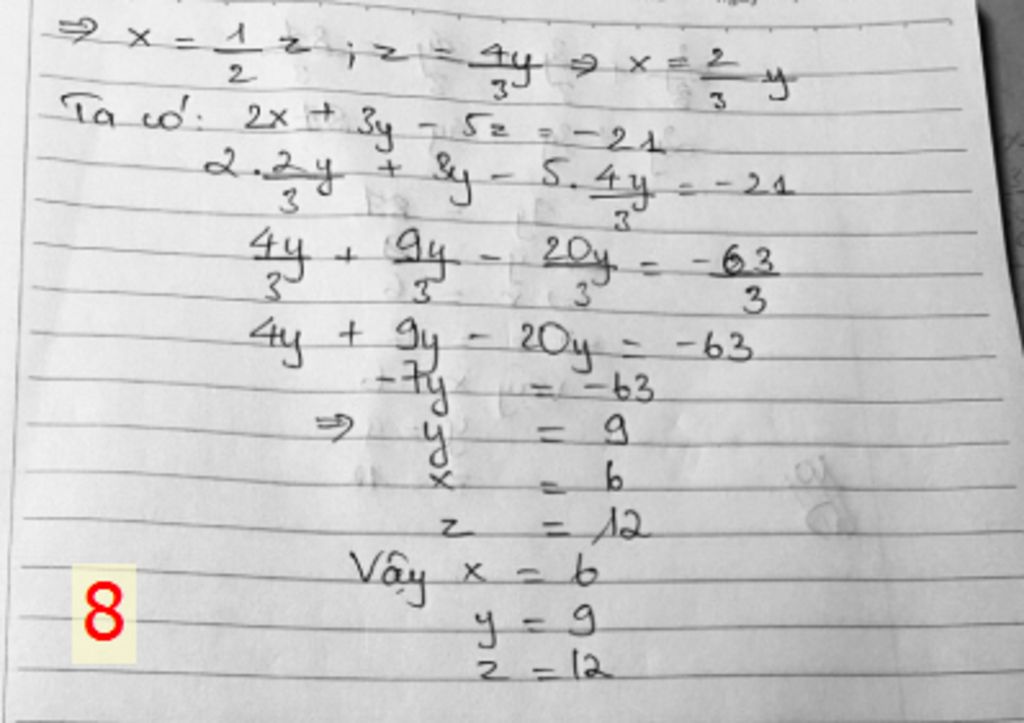 ⇒ x = 1/2 z ; z = 4y/3 ⇒ x = 2/3 y
Ta có: 2x + 3y - 5z = -21
2 . 2y/3 + 3y - 5. 4y/3 = -21
4y/3 + 9y/3 - 20y/3 = -63/3
4y + 9y - 20y = -63
-7y = -63
⇒ y = 9
x = 6
z = 12
Vậy x = 6
y = 9
z = 12
8